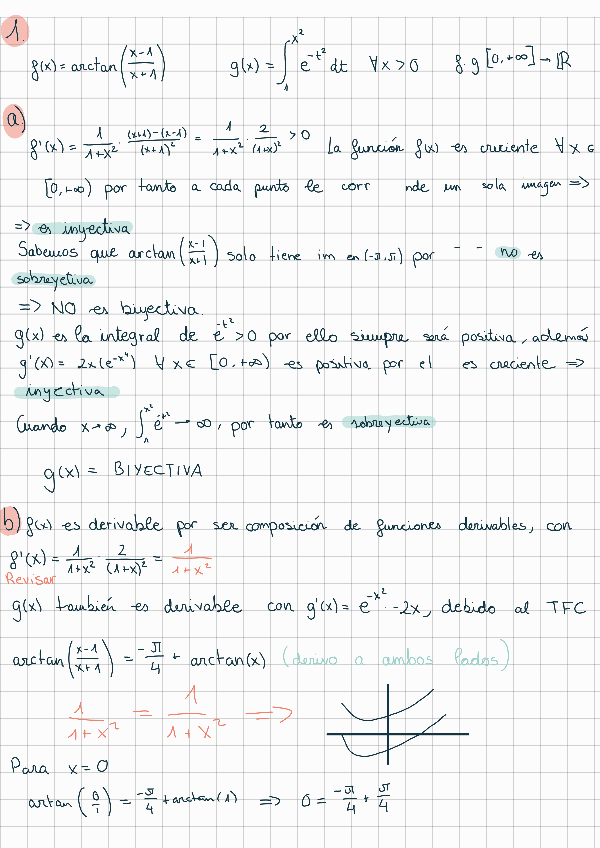 1.
f(x) = arctan((x-1)/(x+1))   g(x) = ∫₁^{x²} e^{-t²} dt   ∀x>0   f·g [0,+∞] → ℝ
a)
f'(x) = 1/(1+x²) · ((x+1)-(x-1))/(x+1)² = 1/(1+x²) · 2/(1+x)² > 0 La función f(x) es creciente ∀x ∈
[0,+∞) por tanto a cada punto le corr nde un sola imagen =>
=> es inyectiva
Sabemos que arctan((x-1)/(x+1)) solo tiene im en (-π,π) por no es
sobreyetiva
=> NO es biyectiva.
g(x) es la integral de e^{-t²} > 0 por ello siempre será positiva, además
g'(x) = 2x(e^{-x⁴}) ∀x∈ [0,+∞) es positiva por el es creciente =>
inyectiva
Cuando x→∞, ∫₁^{x²} e^{-t²} → ∞, por tanto es sobreyectiva
g(x) = BIYECTIVA
b) f(x) es derivable por ser composición de funciones derivables, con
f'(x) = 1/(1+x²) · 2/(1+x)² = 1/(1+x²)
Revisar
g(x) también es derivable con g'(x) = e^{-x²} · -2x, debido al TFC
arctan((x-1)/(x+1)) = -π/4 + arctan(x) (derivo a ambos lados)
1/(1+x²) = 1/(1+x²) =>
Para x=0
artan(0/1) = -π/4 + arctan(1) => 0 = -π/4 + π/4